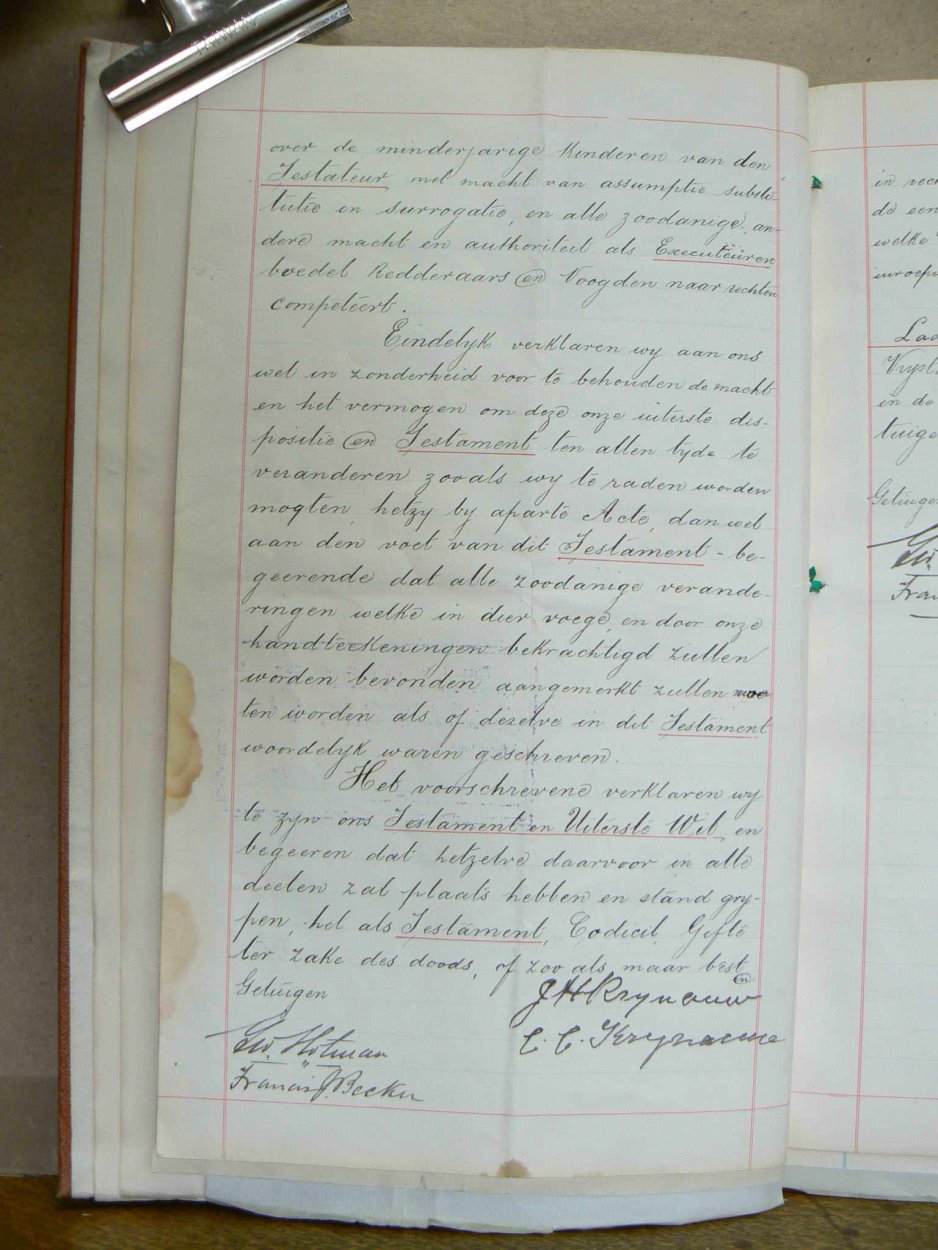 TAIWAN
over de minderjarige Kinderen van den
Testateur, met macht van assumptie substi-
tutie en surrogatie, en alle zoodanige an-
dere macht en authoriteit als Executeuren
boedel Redderaars en Voogden naar rechten
competeert.
Eindelyk verklaren wy aan ons
wel in zonderheid voor te behouden de macht
en het vermogen om deze onze uiterste dis-
positie en Testament ten allen tyde te
veranderen zooals wy te raden worden
mogten hetzy by aparte Acte, dan wel
aan den voet van dit Testament - be-
geerende dat alle zoodanige verande-
ringen welke in dier voege, en door onze
handteekeningen bekrachtigd zullen
worden bevonden aangemerkt zullen moe
ten worden als of dezelve in dit Testament
woordelyk waren geschreven.
Het voorschrevene verklaren wy
te zyn ons Testament en Uiterste Wil, en
begeeren dat hetzelve daarvoor in alle
deelen zal plaats hebben en stand gry-
pen, het als Testament, Codicil, Gifte
ter zake des doods, of zoo als maar best
en
Getuigen
J H Krynauw
C. C. Krynauw
Francis J. Becker
in rec
de een
welke
inroepe
Vryst
in de
tuige
Getuige
Fran